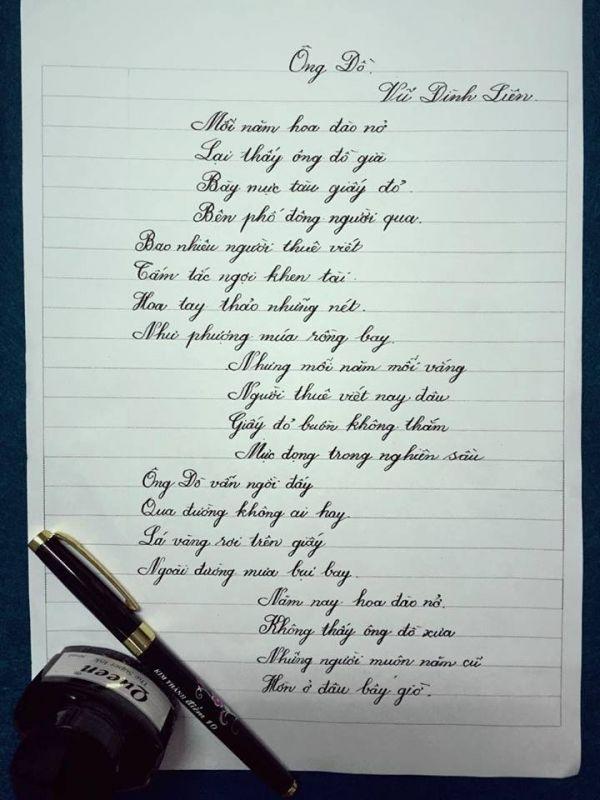 Ông Đồ.
Vũ Đình Liên.
Mỗi năm hoa đào nở
Lại thấy ông đồ già
Bày mực tàu giấy đỏ.
Bên phố đông người qua.
Bao nhiêu người thuê viết
Tấm tắc ngợi khen tài.
Hoa tay thảo những nét.
Như phượng múa rồng bay.
Nhưng mỗi năm mỗi vắng
Người thuê viết nay đâu
Giấy đỏ buồn không thắm
Mực đọng trong nghiên sầu
Ông Đồ vẫn ngồi đấy
Qua đường không ai hay.
Lá vàng rơi trên giấy
Ngoài đường mưa bụi bay.
Năm nay hoa đào nở.
Không thấy ông đồ xưa
Những người muôn năm cũ
Hồn ở đâu bây giờ.
Queen
The Super Ink
KIM THÀNH điểm 10